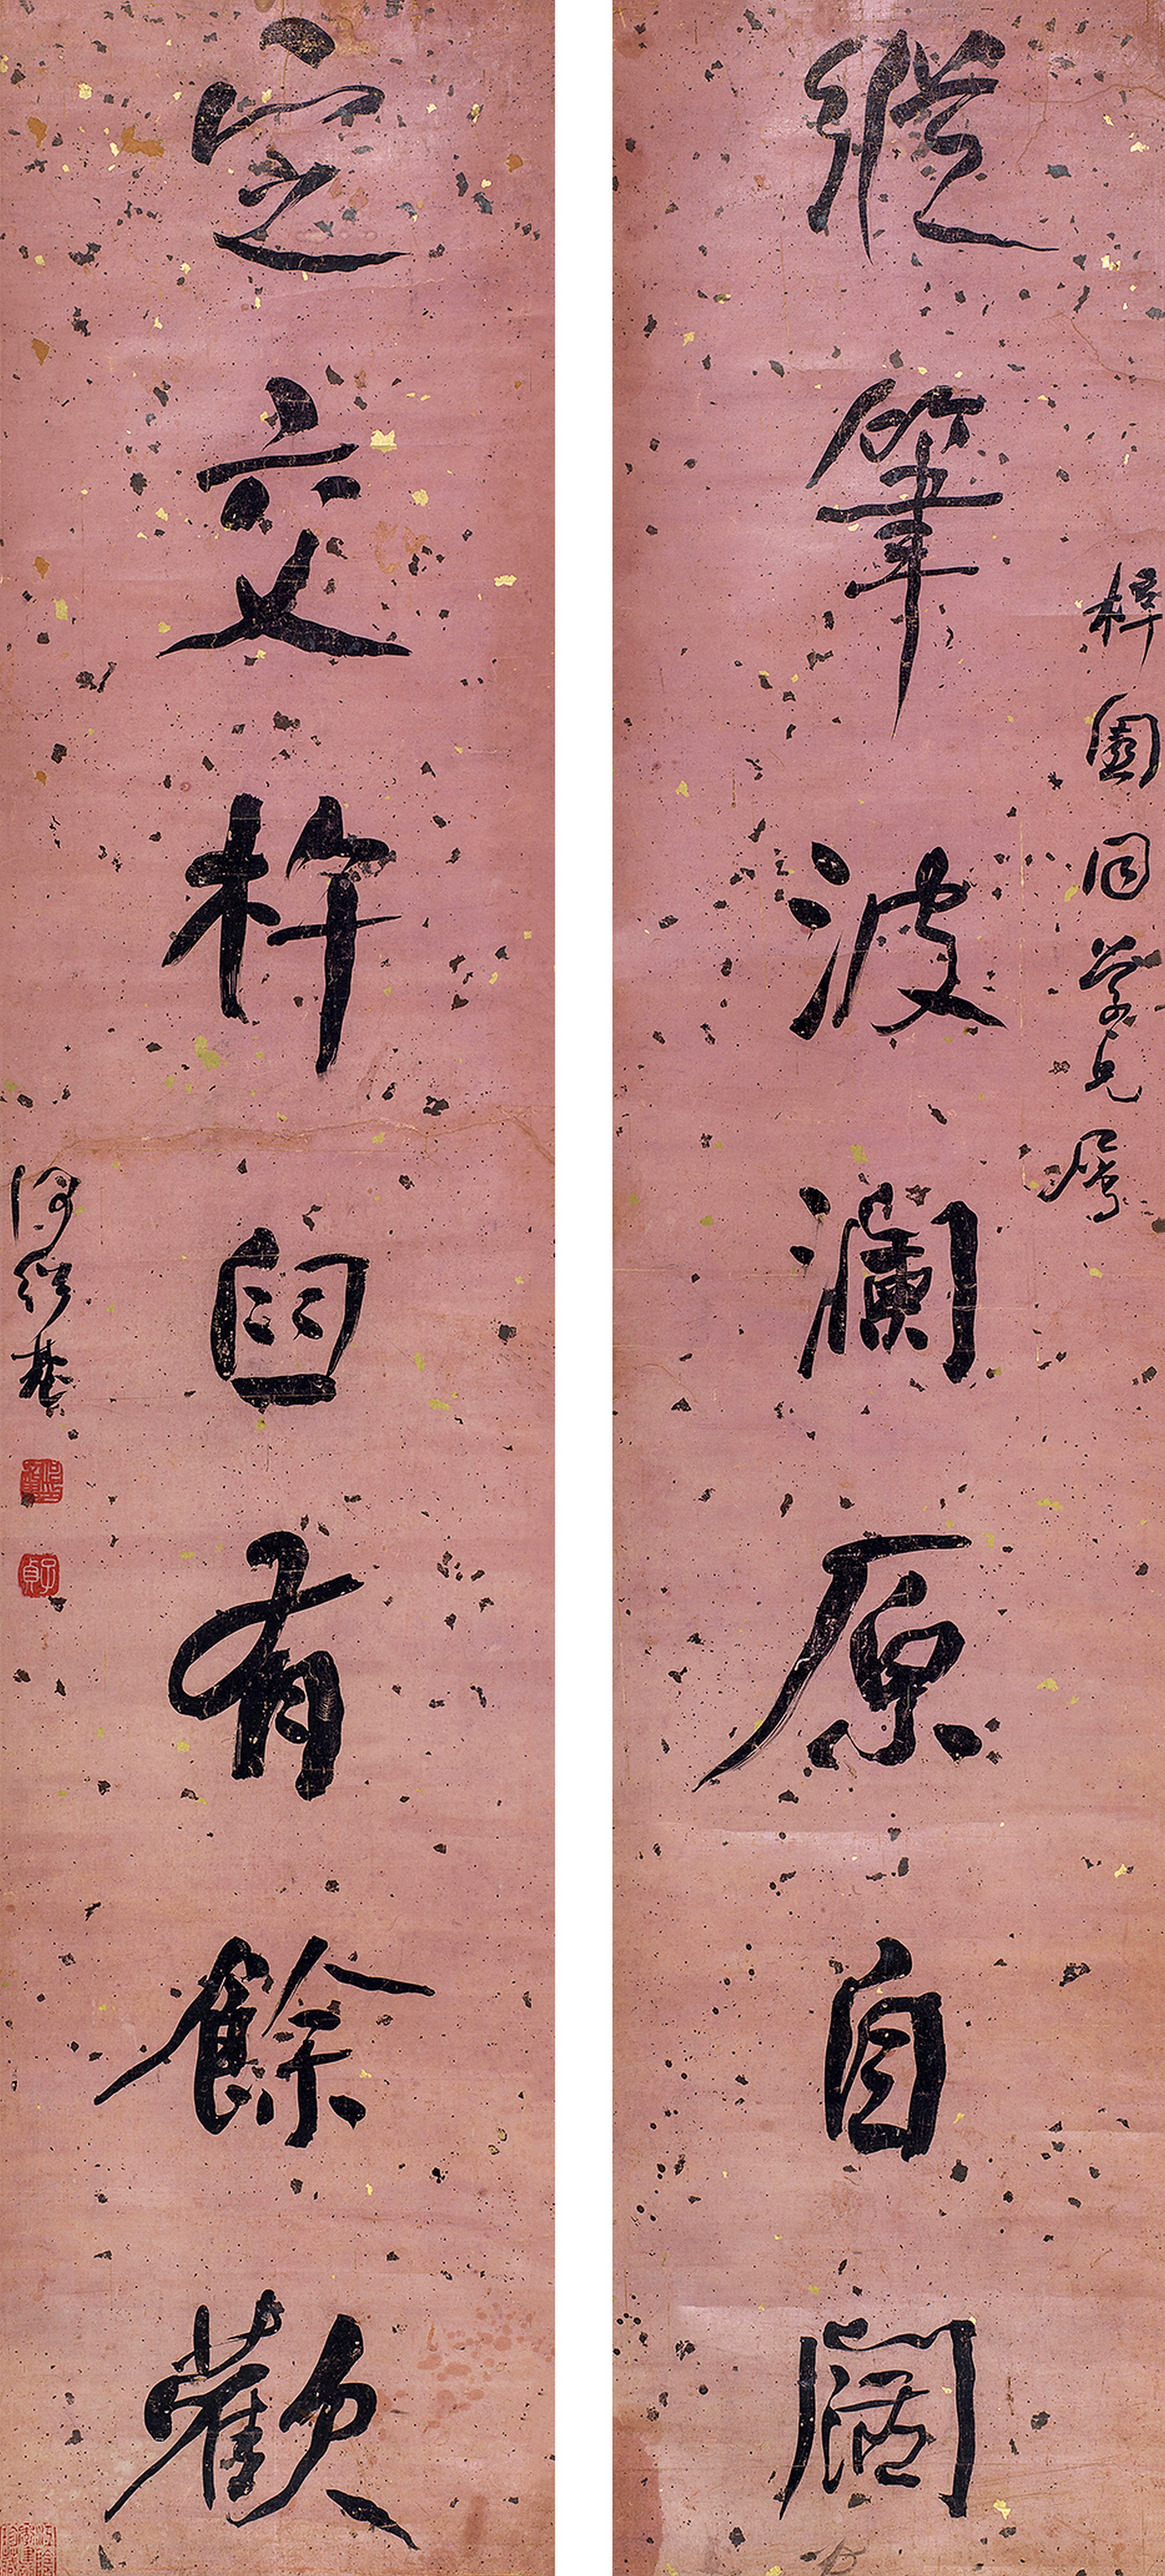 梓園同學兄屬
縱筆波瀾原自闊
定交杵臼有餘歡
何紹基
子貞